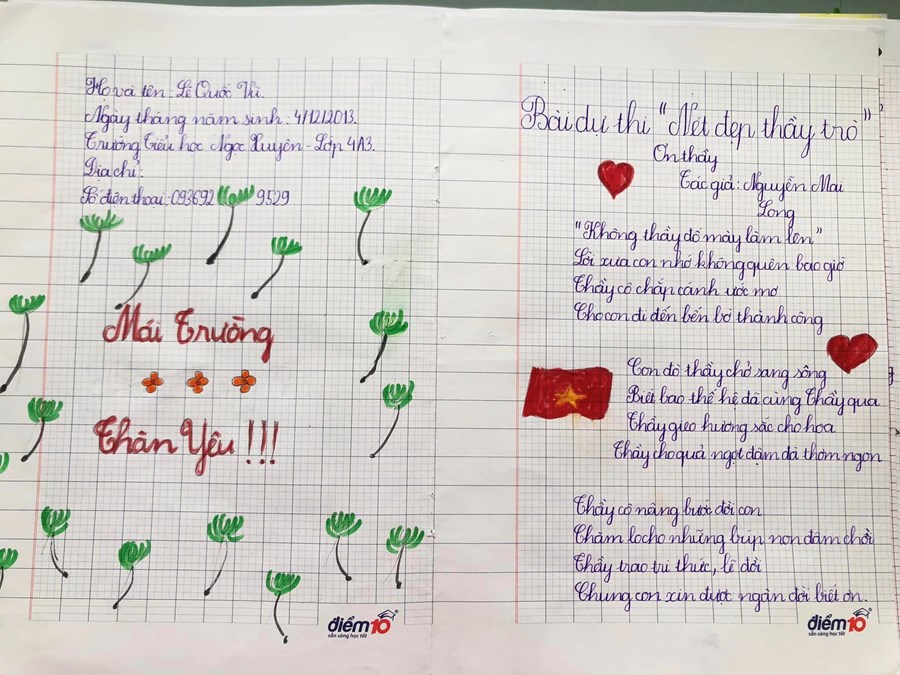 Họ và tên: Lê Quốc Vĩ.
Ngày tháng năm sinh: 4/12/2013.
Trường Tiểu học Ngọc Xuyên - Lớp 4A3.
Địa chỉ:
Số điện thoại: 093692 9529
Mái Trường
Thân Yêu !!!
điểm10
sẵn sàng học tốt
Bài dự thi "Nét đẹp thầy trò"
Ơn thầy
Tác giả: Nguyễn Mai
Long
"Không thầy đố mày làm lên"
Lời xưa con nhớ không quên bao giờ
Thầy cô chắp cánh ước mơ
Cho con đi đến bến bờ thành công
Con đò thầy chở sang sông
Biết bao thế hệ đã cùng Thầy qua
Thầy gieo hương sắc cho hoa
Thầy cho quả ngọt đậm đà thơm ngon
Thầy cô nâng bước đời con
Chăm lo cho những búp non đâm chồi
Thầy trao tri thức, lẽ đời
Chúng con xin được ngàn đời biết ơn.
điểm10
sẵn sàng học tốt